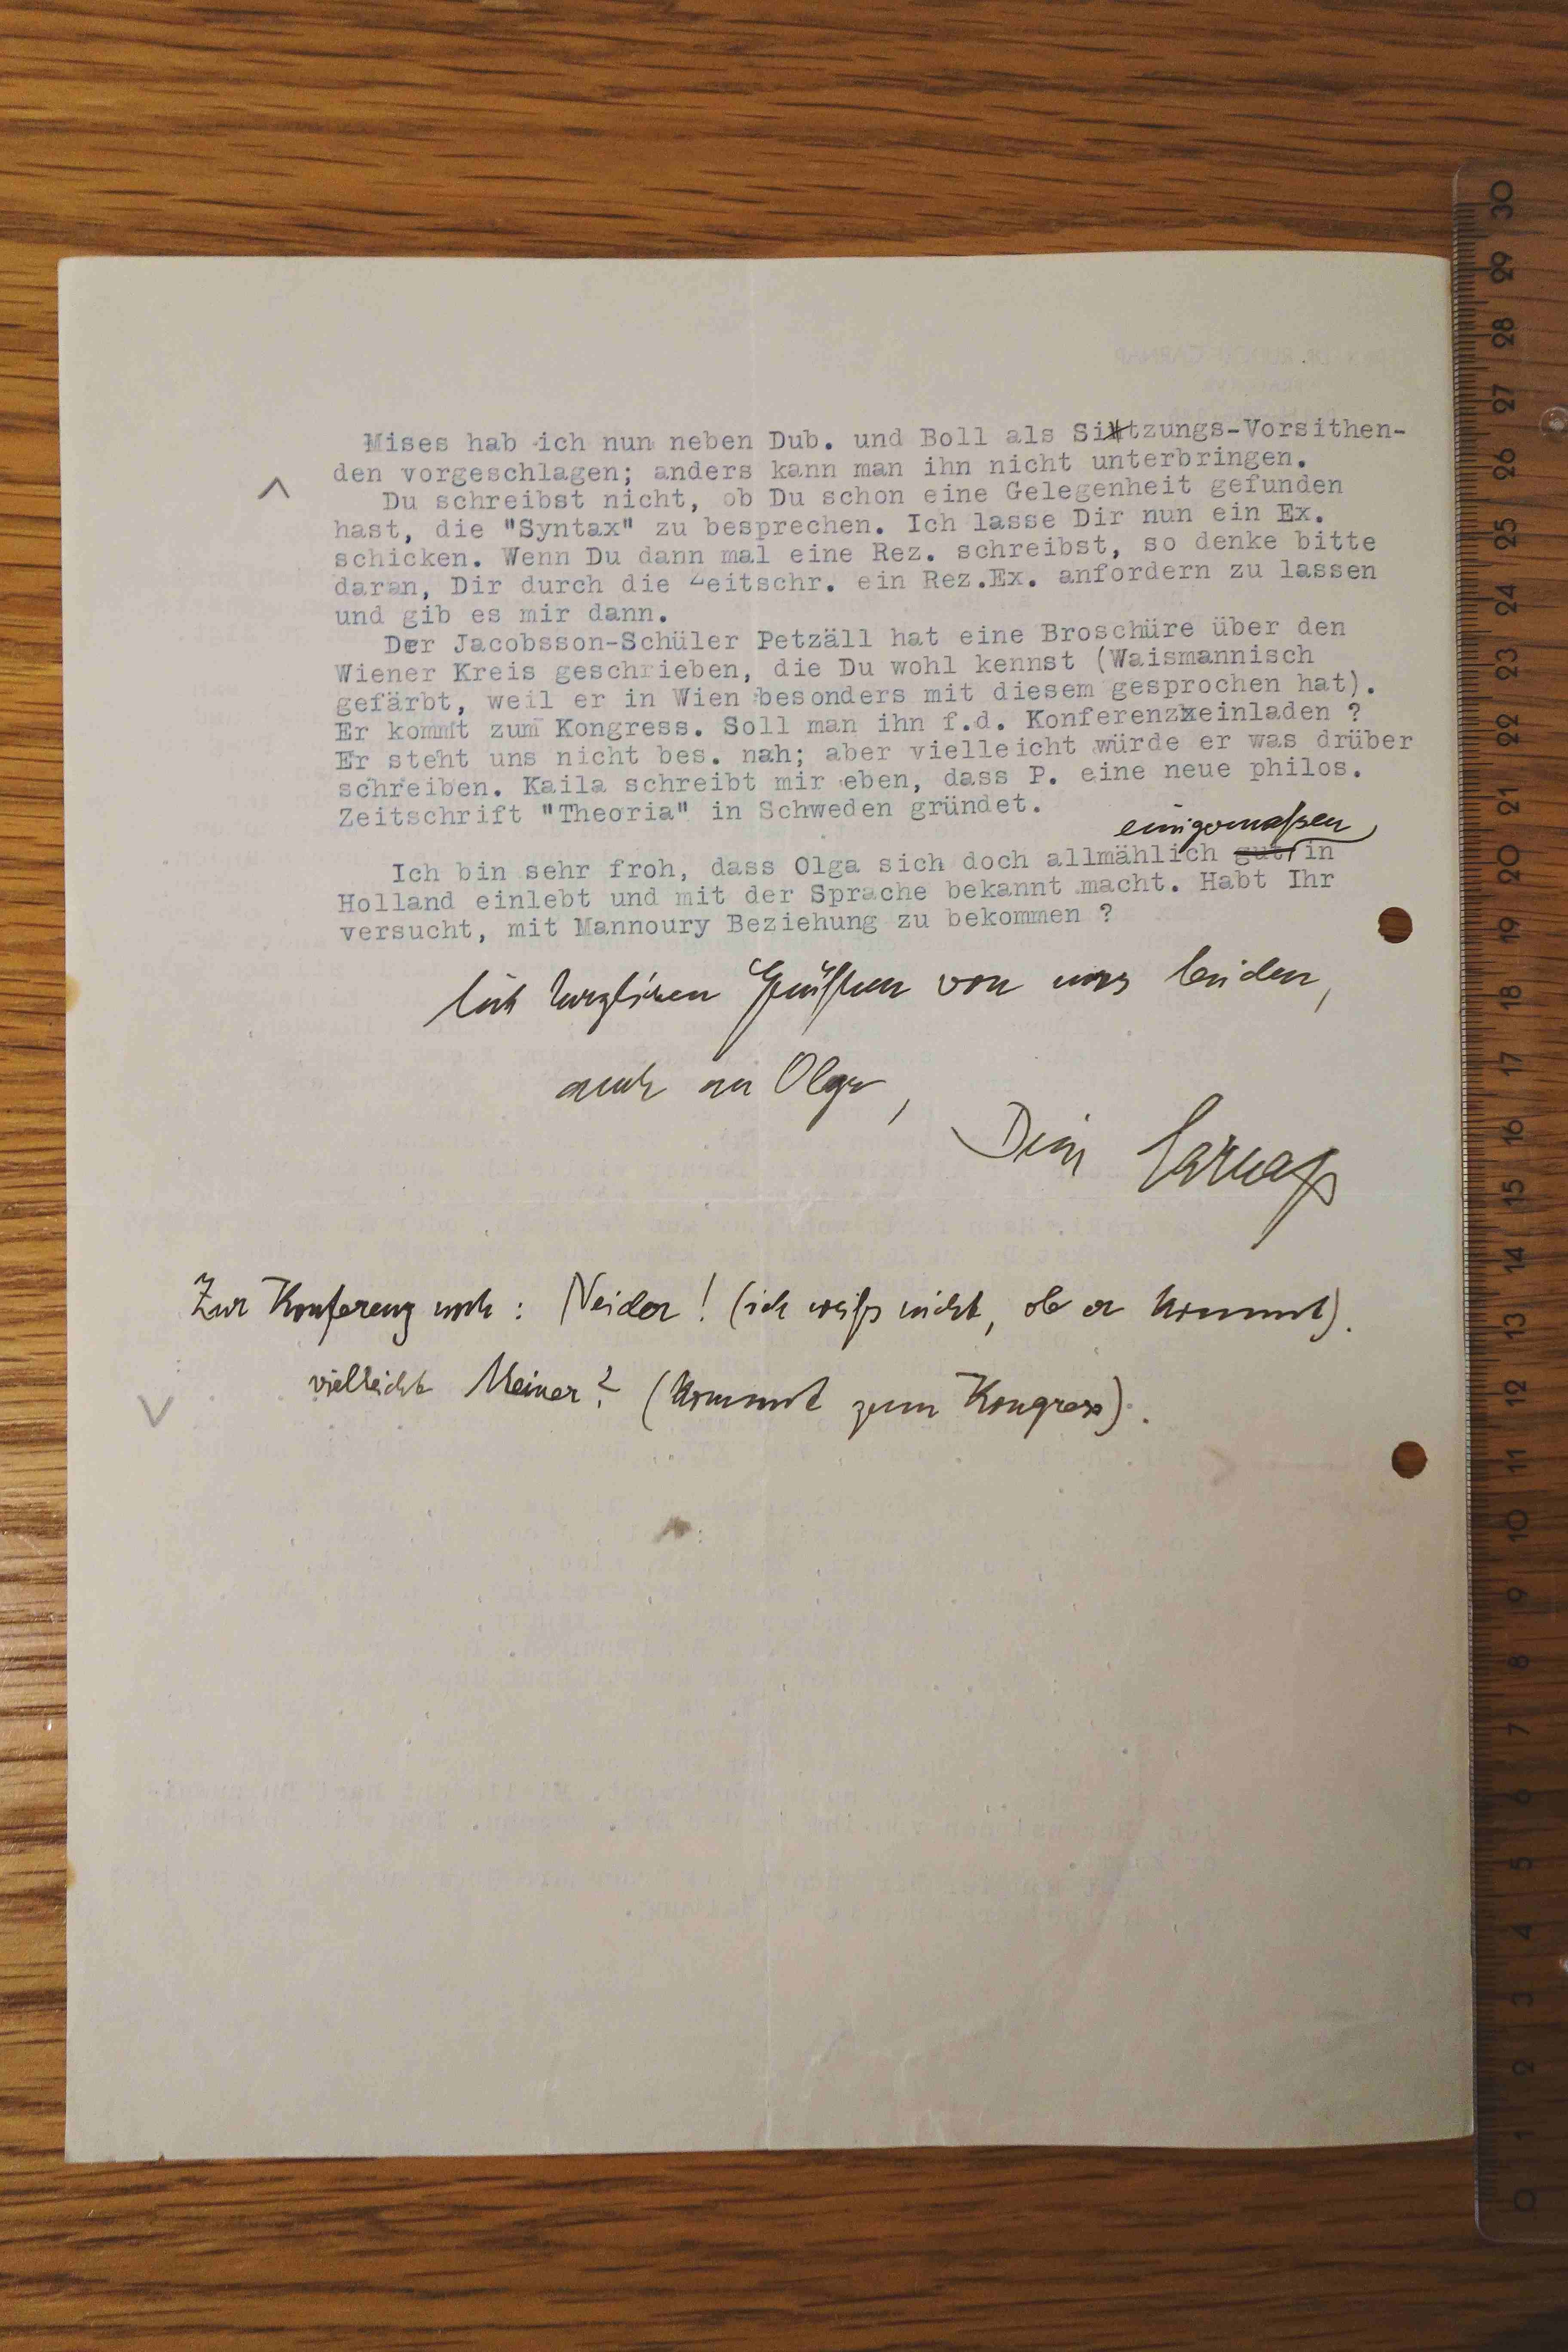 Mises hab ich nun neben Dub. und Boll als Sitzungs-Vorsithen-
den vorgeschlagen; anders kann man ihn nicht unterbringen.
Du schreibst nicht, ob Du schon eine Gelegenheit gefunden
hast, die "Syntax" zu besprechen. Ich lasse Dir nun ein Ex.
schicken. Wenn Du dann mal eine Rez. schreibst, so denke bitte
daran, Dir durch die Zeitschr. ein Rez.Ex. anfordern zu lassen
und gib es mir dann.
Der Jacobsson-Schüler Petzäll hat eine Broschüre über den
Wiener Kreis geschrieben, die Du wohl kennst (Waismannisch
gefärbt, weil er in Wien besonders mit diesem gesprochen hat).
Er kommt zum Kongress. Soll man ihn f.d. Konferenz einladen ?
Er steht uns nicht bes. nah; aber vielleicht würde er was drüber
schreiben. Kaila schreibt mir eben, dass P. eine neue philos.
Zeitschrift "Theoria" in Schweden gründet.
einigermaßen
Ich bin sehr froh, dass Olga sich doch allmählich gut in
Holland einlebt und mit der Sprache bekannt macht. Habt Ihr
versucht, mit Mannoury Beziehung zu bekommen ?
Mit herzlichen Grüßen von uns beiden,
auch an Olga,
Dein Carnap
Zur Konferenz noch: Neider! (ich weiß nicht, ob er kommt).
vielleicht Meiner? (kommt zum Kongress).
30
29
28
27
26
25
24
23
22
21
20
19
18
17
16
15
14
13
12
11
10
9
8
7
6
5
4
3
2
1
0